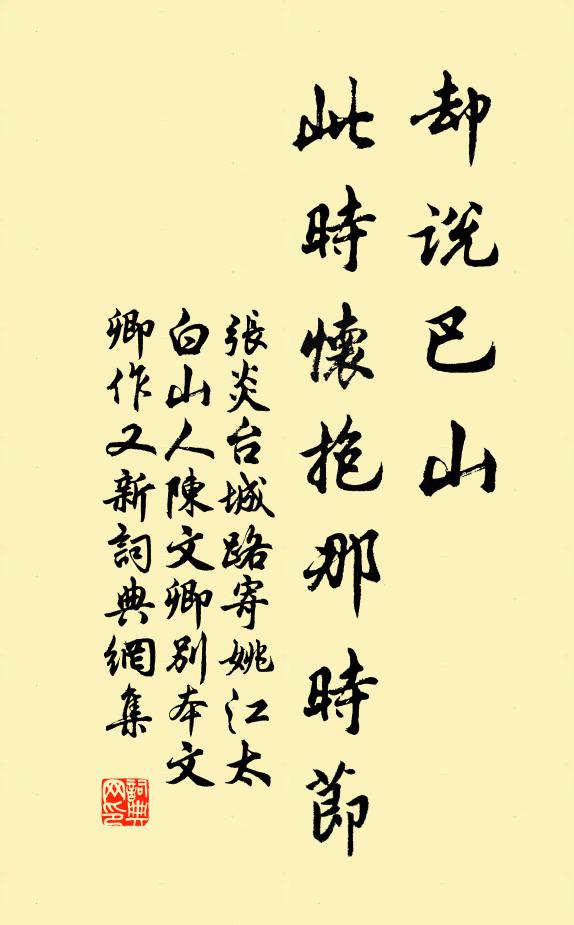 却説巴山
此時懷抱那時節
張炎台城路寄姚江太
白山人陳文卿別本文
卿作又新詞典網集
詞典网印